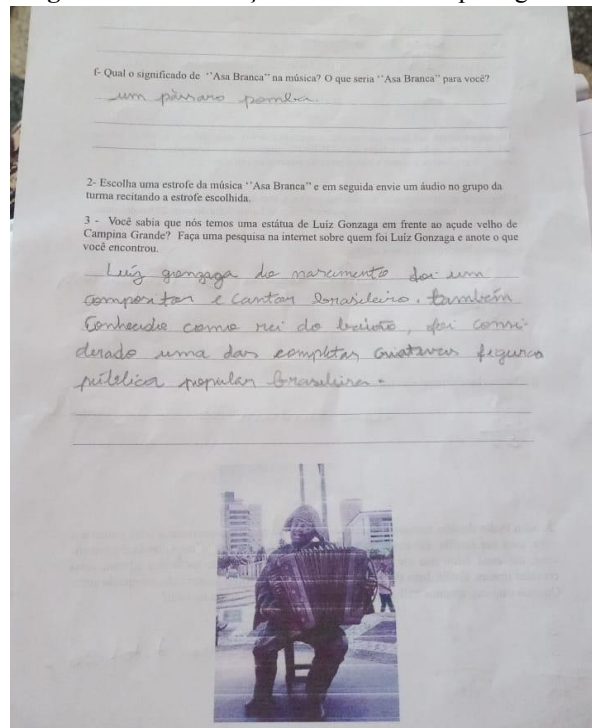 f- Qual o significado de ‘‘Asa Branca’’ na música? O que seria ‘‘Asa Branca’’ para você?
um pássaro pomba.
2- Escolha uma estrofe da música ‘‘Asa Branca’’ e em seguida envie um áudio no grupo da
turma recitando a estrofe escolhida.
3 - Você sabia que nós temos uma estátua de Luiz Gonzaga em frente ao açude velho de
Campina Grande? Faça uma pesquisa na internet sobre quem foi Luiz Gonzaga e anote o que
você encontrou.
Luiz gongaga do nascimento foi um
compositor e cantor brasileiro. também
Conhecido como rei do baião, foi consi-
derado uma das completas criativas figuras
pública popular brasileira.